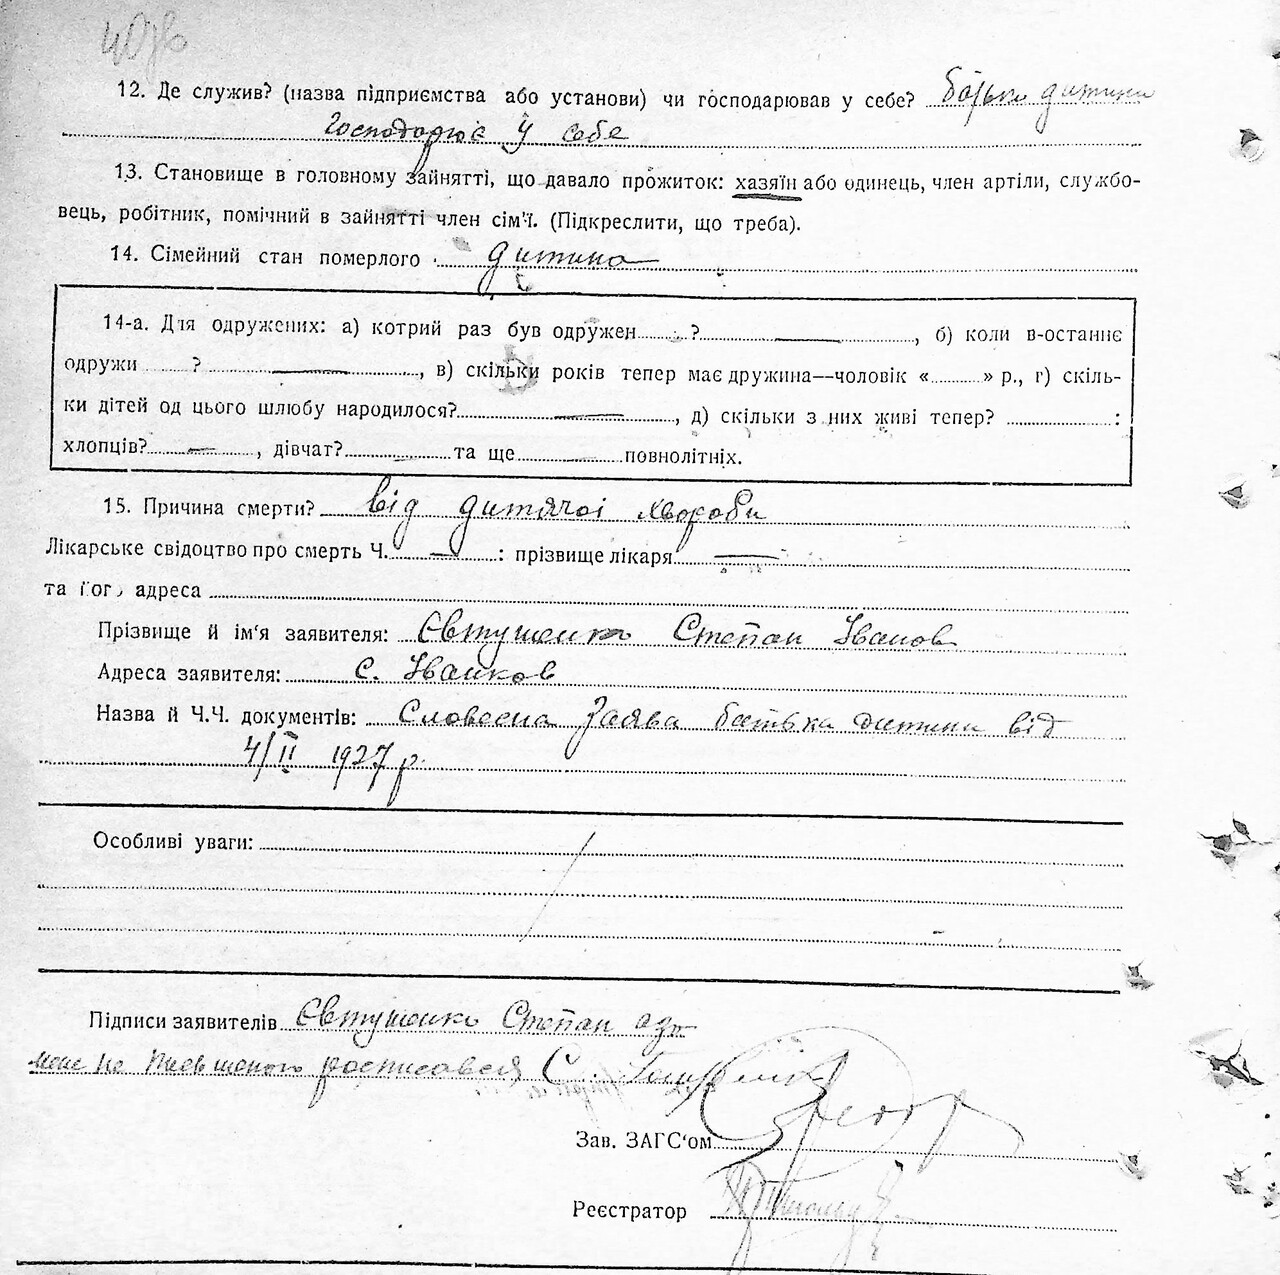 40зв
12. Де служив? (назва підприємства або установи) чи господарював у себе? батько дитини
господарює у себе
13. Становище в головному зайнятті, що давало прожиток: хазяїн або одинець, член артіли, службо-
вець, робітник, помічний в зайнятті член сім'ї. (Підкреслити, що треба).
14. Сімейний стан померлого дитина
14-а. Для одружених: а) котрий раз був одружен ? — , б) коли в-останнє
одружи ? — , в) скільки років тепер має дружина—чоловік « » р., г) скіль-
ки дітей од цього шлюбу народилося? — , д) скільки з них живі тепер? :
хлопців? — , дівчат? — та ще — повнолітніх.
15. Причина смерти? від дитячої хвороби
Лікарське свідоцтво про смерть Ч. — : прізвище лікаря —
та його адреса
Прізвище й ім'я заявителя: Євтушенко Степан Іванов
Адреса заявителя: с. Іванков
Назва й Ч.Ч. документів: Словесна заява батька дитини від
4/II 1927 р.
Особливі уваги:
Підписи заявителів Євтушенко Степан а за
мене не письменого росписався С.
Зав. ЗАГС'ом
Реєстратор